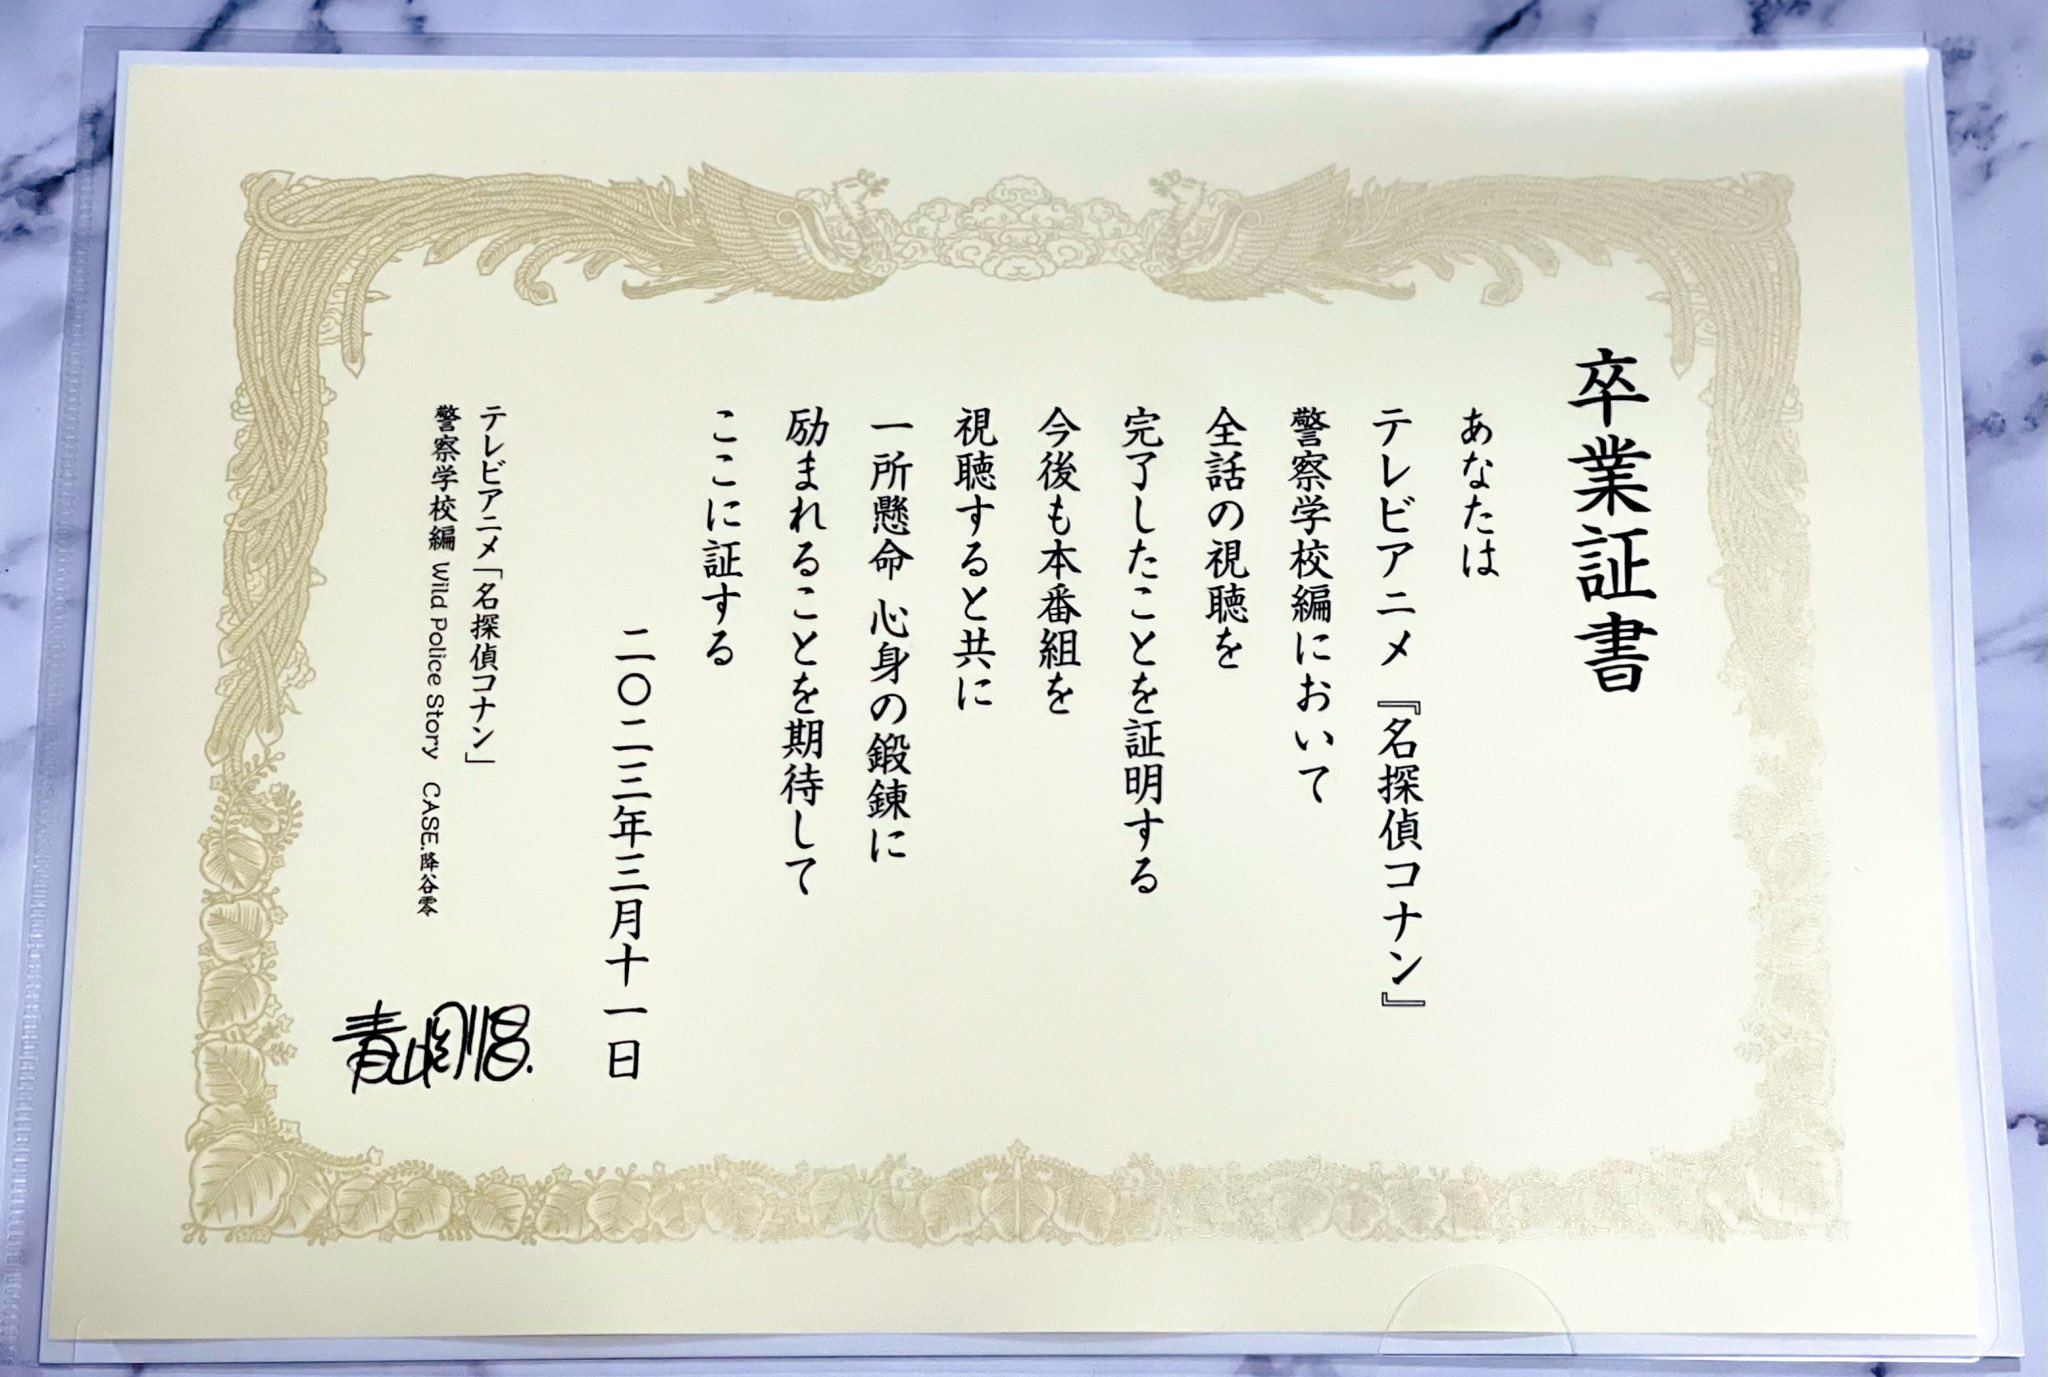 卒業証書
あなたは
テレビアニメ『名探偵コナン』
警察学校編において
全話の視聴を
完了したことを証明する
今後も本番組を
視聴すると共に
一所懸命 心身の鍛錬に
励まれることを期待して
ここに証する
二〇二三年三月十一日
テレビアニメ「名探偵コナン」
警察学校編 Wild Police Story CASE.降谷零
青山剛昌